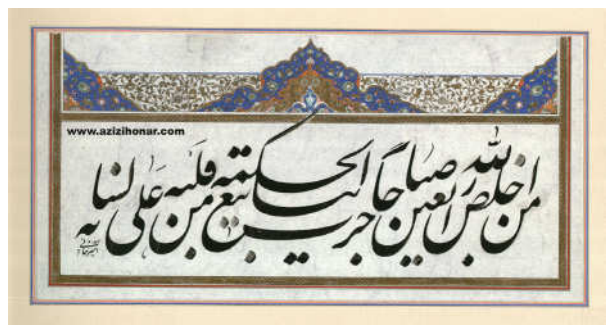 www.azizihonar.com
من اخلص لله اربعین صباحاً جرت ینابیع الحکمة من قلبه علی لسانه